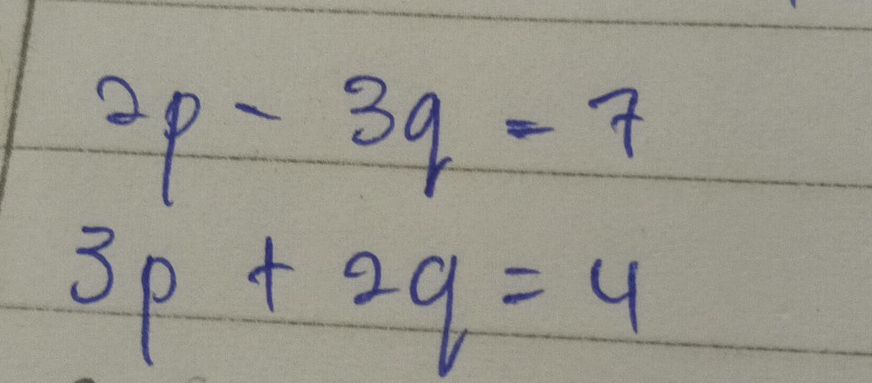 2p - 3q = 7
3p + 2q = 4